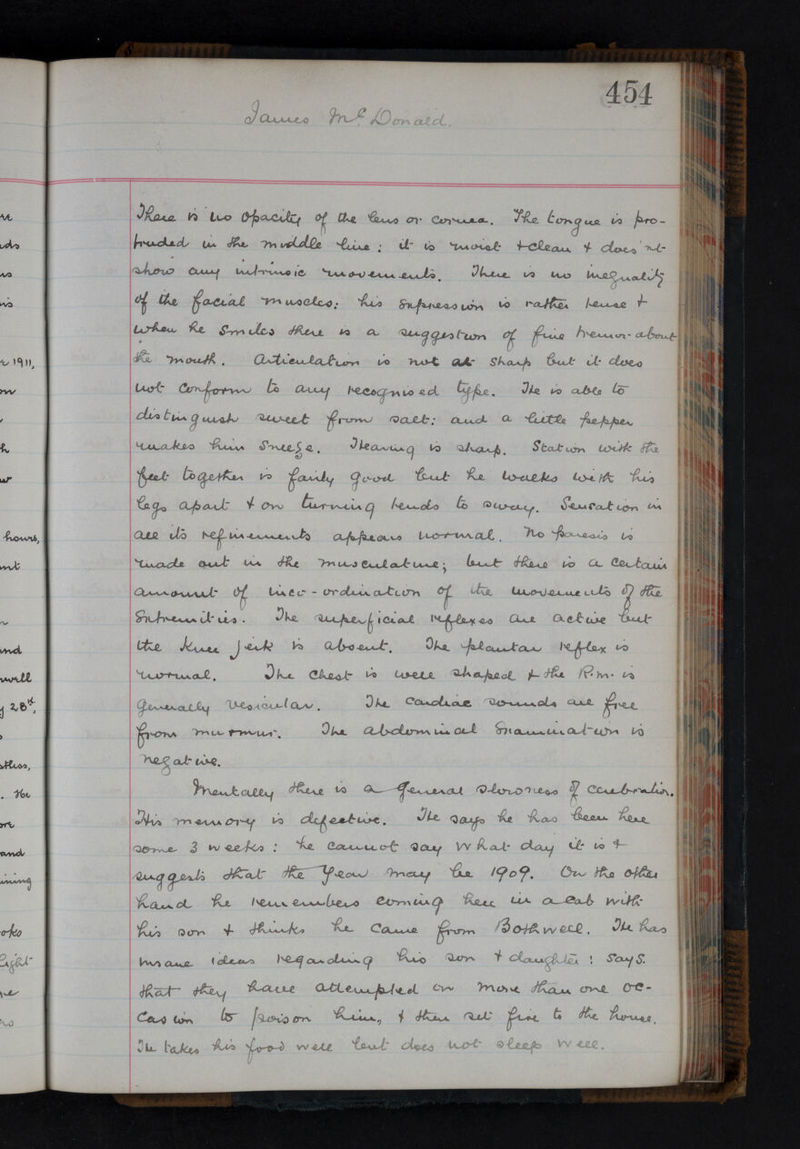 454
James McDonald.
There is no opacity of the lens or cornea. The tongue is pro-
truded in the middle line: it is moist & clean & does not
show any intrinsic movements. There is no inequality
of the facial muscles: his expression is rather tense &
when he smiles there is a suggestion of fine tremor about
the mouth. Articulation is not sharp but it does
not conform to any recognised type. He is able to
distinguish sweet from salt: and a little pepper
makes him sneeze. Hearing is sharp. Station with the
feet together is fairly good but he walks with his
legs apart & on turning tends to sway. Sensation in
all its refinements appears normal. No paresis is
made out in the musculature; but there is a certain
amount of inco-ordination of the movements of the
Extremities. The superficial reflexes are active but
the Knee Jerk is absent. The plantar reflex is
normal. The chest is well shaped & the R.m. is
generally vesicular. The cardiac sounds are free
from murmur. The abdominal Examination is
negative.
Mentally there is a general slowness of cerebration.
His memory is defective. He says he has been here
some 3 weeks: he cannot say what day it is &
suggests that the Year may be 1909. On the other
hand he remembers coming here in a cab with
his son & thinks he came from Bothwell. He has
insane ideas regarding his son & daughter: says.
that they have attempted on more than one oc-
casion to poison him, & then set fire to the house.
He takes his food well but does not sleep well.
1911,
hours,
and
will
28th,
and